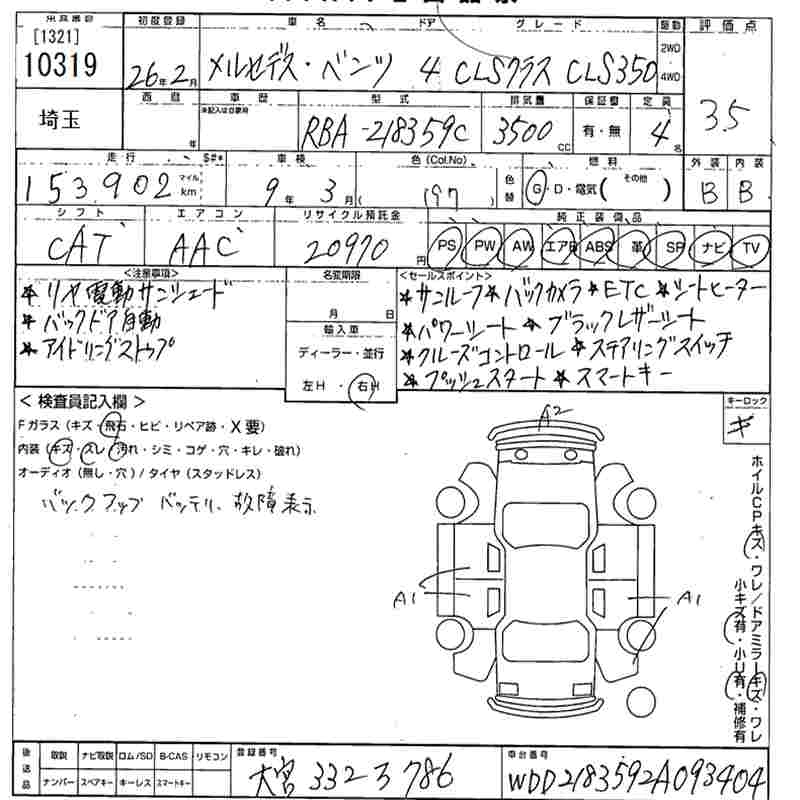 [1321]
10319
初度登録
26年2月
車名
メルセデス・ベンツ
ドア
4
グレード
CLSクラス CLS350
駆動
2WD
4WD
評価点
3.5
埼玉
西暦
年
車歴
型式
RBA-218359C
排気量
3500 CC
保証書
有・無
定員
4名
走行
153,902
マイル
km
S#*
車検
9年 3月
色(Col.No)
(197)
色替
燃料
G・D・電気(その他)
外装
B
内装
B
シフト
CAT
エアコン
AAC
リサイクル預託金
20970円
純正装備品
PS PW AW エアB ABS 革 SR ナビ TV
<注意事項>
* リヤ電動サンシェード
* バックドア自動
* アイドリングストップ
名変期限
月 日
輸入車
ディーラー・並行
左H・右H
<セールスポイント>
* サンルーフ * バックカメラ * ETC * シートヒーター
* パワーシート * ブラックレザーシート
* クルーズコントロール * ステアリングスイッチ
* プッシュスタート * スマートキー
<検査員記入欄>
Fガラス(キズ・飛石・ヒビ・リペア跡・X要)
内装(キズ・スレ・汚れ・シミ・コゲ・穴・キレ・破れ)
オーディオ(無し・穴)/タイヤ(スタッドレス)
バックアップ バッテリー 故障表示
A2
A1
A1
キーロック
ホイルCPキズ・ワレ/ドアミラーキズ・ワレ
小キズ有・小U有・補修有
後送品
取説 ナビ取説 ロム/SD B-CAS リモコン
ナンバー スペアキー キーレス スマートキー
登録番号
大宮 332 ろ 786
車台番号
WDD2183592A093404